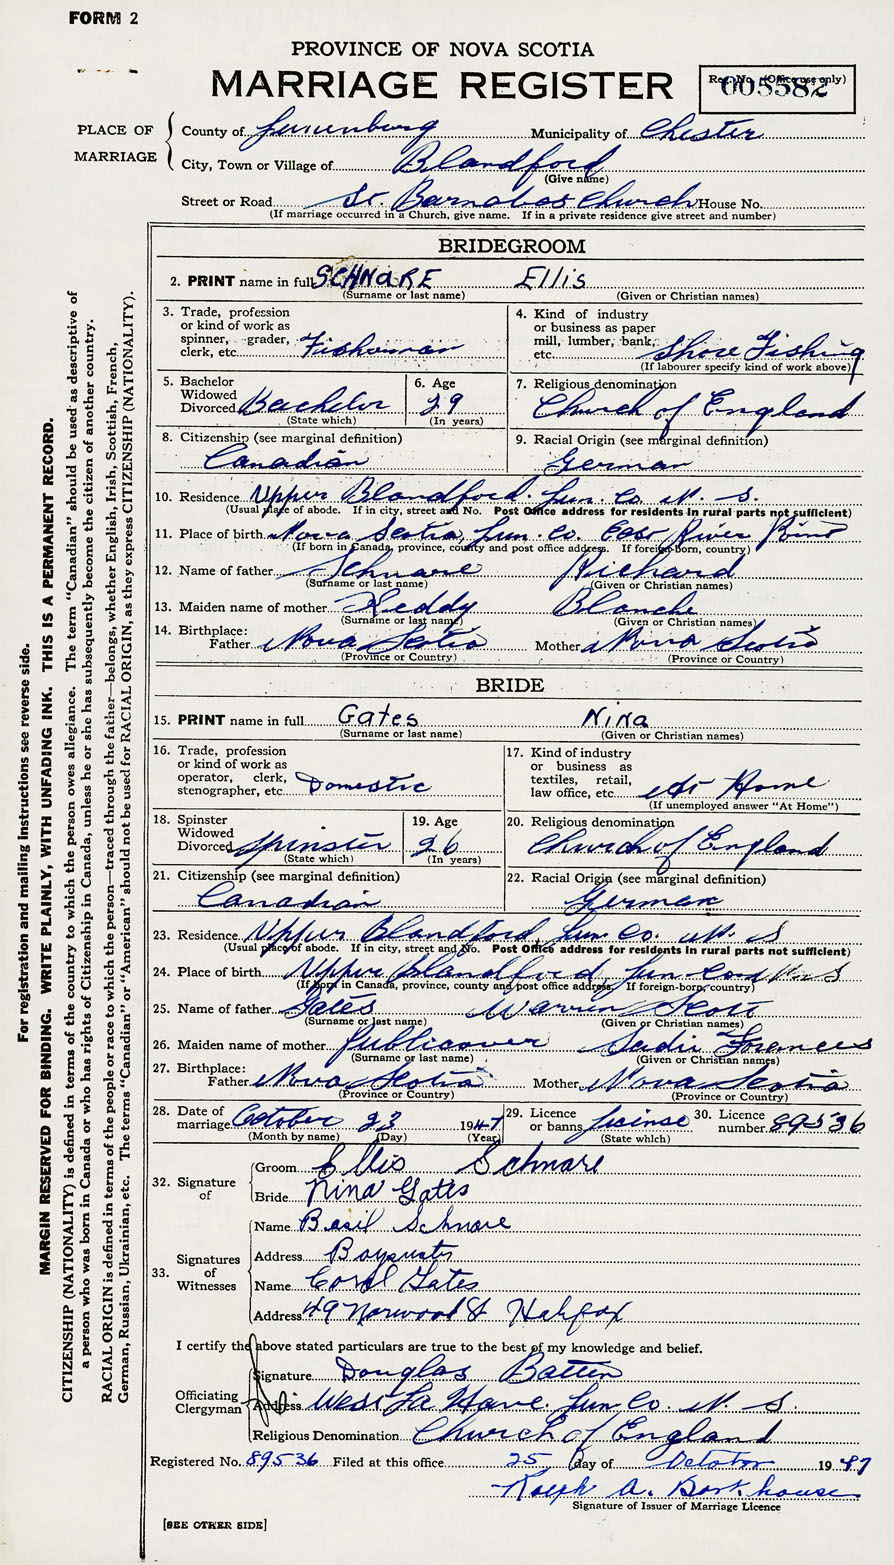 FORM 2
PROVINCE OF NOVA SCOTIA
MARRIAGE REGISTER
Reg. No. (Office use only)
005582
PLACE OF MARRIAGE
County of Lunenburg Municipality of Chester
City, Town or Village of Blandford
(Give name)
Street or Road St. Barnabas Church House No.
(If marriage occurred in a Church, give name. If in a private residence give street and number)
BRIDEGROOM
2. PRINT name in full SCHNARE Ellis
(Surname or last name) (Given or Christian names)
3. Trade, profession
or kind of work as
spinner, grader,
clerk, etc. Fisherman
4. Kind of industry
or business as paper
mill, lumber, bank,
etc. Shore Fishing
(If labourer specify kind of work above)
5. Bachelor
Widowed
Divorced Bachelor
(State which)
6. Age
29
(In years)
7. Religious denomination
Church of England
8. Citizenship (see marginal definition)
Canadian
9. Racial Origin (see marginal definition)
German
10. Residence Upper Blandford. Lun. Co. N. S.
(Usual place of abode. If in city, street and No. Post Office address for residents in rural parts not sufficient)
11. Place of birth Nova Scotia, Lun. Co. East River Point
(If born in Canada, province, county and post office address. If foreign-born, country)
12. Name of father Schnare Richard
(Surname or last name) (Given or Christian names)
13. Maiden name of mother Keddy Blanche
(Surname or last name) (Given or Christian names)
14. Birthplace:
Father Nova Scotia Mother Nova Scotia
(Province or Country) (Province or Country)
BRIDE
15. PRINT name in full Gates Nina
(Surname or last name) (Given or Christian names)
16. Trade, profession
or kind of work as
operator, clerk,
stenographer, etc. Domestic
17. Kind of industry
or business as
textiles, retail,
law office, etc. At Home
(If unemployed answer "At Home")
18. Spinster
Widowed
Divorced Spinster
(State which)
19. Age
26
(In years)
20. Religious denomination
Church of England
21. Citizenship (see marginal definition)
Canadian
22. Racial Origin (see marginal definition)
German
23. Residence Upper Blandford, Lun Co. N. S
(Usual place of abode. If in city, street and No. Post Office address for residents in rural parts not sufficient)
24. Place of birth Upper Blandford, Lun Co N S
(If born in Canada, province, county and post office address. If foreign-born, country)
25. Name of father Gates Warren Scott
(Surname or last name) (Given or Christian names)
26. Maiden name of mother Publicover Sadie
(Surname or last name) (Given or Christian names)
27. Birthplace:
Father Nova Scotia Mother Nova Scotia
(Province or Country) (Province or Country)
28. Date of
marriage October 23 1947
(Month by name) (Day) (Year)
29. Licence
or banns license
(State which)
30. Licence
number 89536
32. Signature of
Groom Ellis Schnare
Bride Nina Gates
33. Signatures of Witnesses
Name Basil Schnare
Address
Name Coral Gates
Address 49 Norwood St Halifax
I certify the above stated particulars are true to the best of my knowledge and belief.
Officiating Clergyman
Signature Douglas Batten
Address West La Have. Lun Co. N. S.
Religious Denomination Church of England
Registered No. 89536 Filed at this office 25 day of October 1947
Ralph A. Barkhouse
Signature of Issuer of Marriage Licence
[SEE OTHER SIDE]
For registration and mailing instructions see reverse side.
MARGIN RESERVED FOR BINDING. WRITE PLAINLY, WITH UNFADING INK. THIS IS A PERMANENT RECORD.
CITIZENSHIP (NATIONALITY) is defined in terms of the country to which the person owes allegiance. The term "Canadian" should be used as descriptive of
a person who was born in Canada or who has rights of Citizenship in Canada, unless he or she has subsequently become the citizen of another country.
RACIAL ORIGIN is defined in terms of the people or race to which the person—traced through the father—belongs, whether English, Irish, Scottish, French,
German, Russian, Ukrainian, etc. The terms "Canadian" or "American" should not be used for RACIAL ORIGIN, as they express CITIZENSHIP (NATIONALITY).